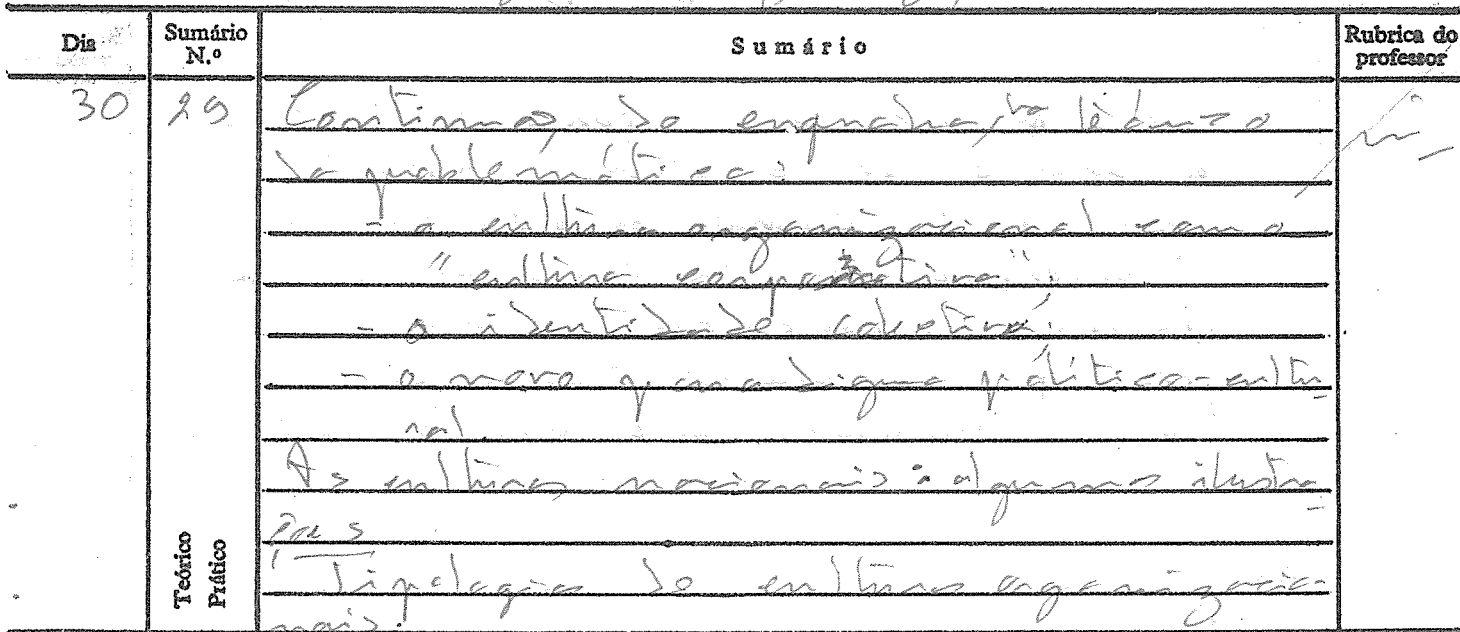 Dia
Sumário N.º
Sumário
Rubrica do professor
30
29
Continuaç. do enquadra/to teórico
da problemática:
- a cultura organizacional como
"cultura corporativa";
- a identidade coletiva;
- o novo paradigma político-cultu
ral.
As culturas nacionais: algumas ilustra
ções
Tipologias de culturas organizacio-
nais.
Teórico
Prático